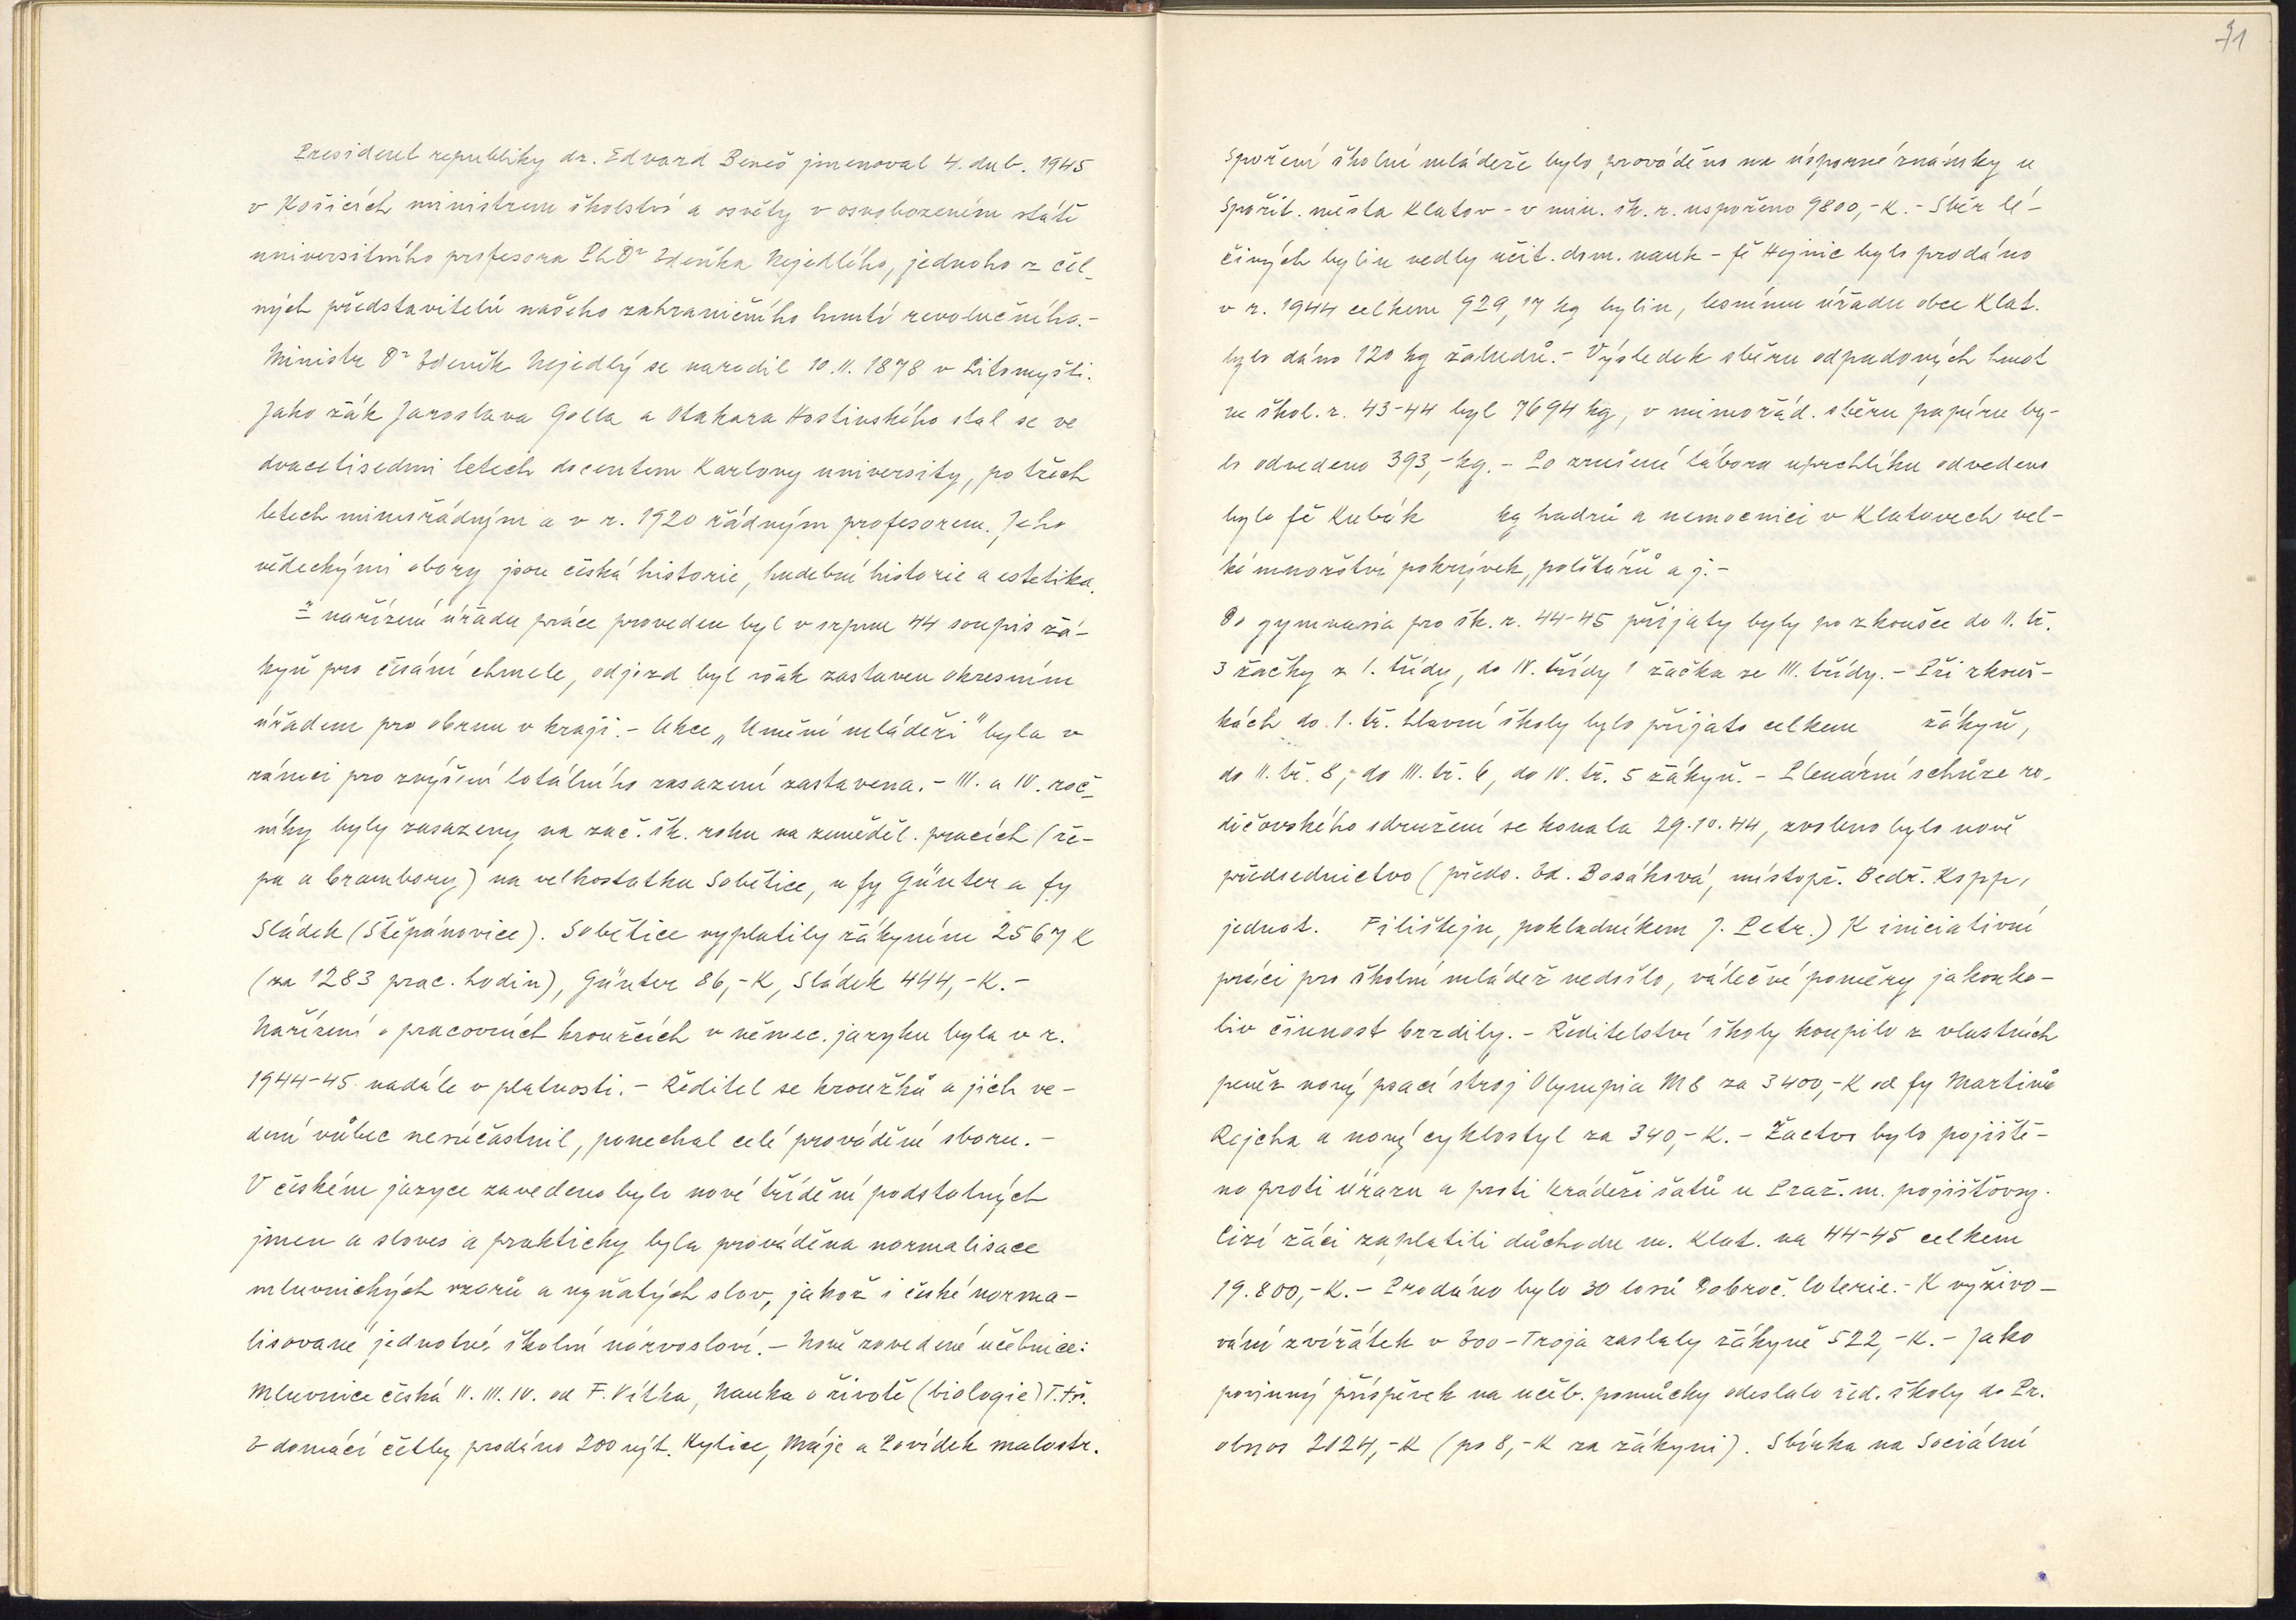 President republiky dr. Edvard Beneš jmenoval 4. dub. 1945
v Košicích ministrem školství a osvěty v osvobozeném státě
universitního profesora PhDr Zdeňka Nejedlého, jednoho z čel-
ných představitelů našeho zahraničního hnutí revolučního.-
Ministr Dr Zdeněk Nejedlý se narodil 10.II.1878 v Litomyšli.
Jako žák Jaroslava Golla a Otakara Hostinského stal se ve
dvacetisedmi letech docentem Karlovy university, po třech
letech mimořádným a v r. 1920 řádným profesorem. Jeho
vědeckými obory jsou česká historie, hudební historie a estetika.
Z nařízení úřadu práce proveden byl v srpnu 44 soupis žá-
kyň pro česání chmele, odjezd byl však zastaven okresním
úřadem pro obranu v kraji. - Akce „Umění mládeži" byla v
rámci pro zvýšení totálního nasazení zastavena. - III. a IV. roč-
níky byly nasazeny na zač. šk. roku na zeměděl. pracích (ře-
pa a brambory) na velkostatku Sobětice, u fy Günter a fy
Sládek (Štěpánovice). Sobětice vyplatily žákyním 2567 K
(za 1283 prac. hodin), Günter 86,-K, Sládek 444,-K.-
Nařízení o pracovních kroužcích v němec. jazyku byla v r.
1944-45 nadále v platnosti. - Ředitel se kroužků a jich ve-
dení vůbec nesúčastnil, ponechal celé provádění sboru. -
V českém jazyce zavedeno bylo nové třídění podstatných
jmen a sloves a prakticky byla prováděna normalisace
mluvnických vzorů a vyňatých slov, jakož i české norma-
lisované jednotné školní názvosloví. - Nově zavedené učebnice:
Mluvnice česká II. III. IV. od F. Vítka, Nauka o životě (biologie) I. tř.
Z domácí četby prodáno 200 výt. Kytice, Máje a Povídek malostr.
71
Spoření školní mládeže bylo prováděno na úsporné známky u
Spořit. města Klatov - v min. šk. r. uspořeno 9800,-K. - Sběr lé-
čivých bylin vedly učit. dom. nauk - fě Hojnic bylo prodáno
v r. 1944 celkem 929,17 kg bylin, lesnímu úřadu obce Klat.
bylo dáno 120 kg žaludů. - Výsledek sběru odpadových hmot
ve škol. r. 43-44 byl 7694 kg, v mimořád. sběru papíru by-
lo odvedeno 393,-kg. - Po zrušení tábora uprchlíku odvedeno
bylo fě Kubík kg hadrů a nemocnici v Klatovech vel-
ké množství pokrývek, polštářů a j. -
Do gymnasia pro šk. r. 44-45 přijaty byly po zkoušce do II. tř.
3 žačky z I. třídy, do IV. třídy 1 žačka ze III. třídy. - Při zkouš-
kách do I. tř. hlavní školy bylo přijato celkem žákyň,
do II. tř. 8, do III. tř. 6, do IV. tř. 5 žákyň. - Plenární schůze ro-
dičovského sdružení se konala 29.10.44, zvoleno bylo nové
předsednictvo (předs. Zd. Bosáková, místopř. Bedř. Kopp,
jednat. Filištejn, pokladníkem J. Petr.) K iniciativní
práci pro školní mládež nedošlo, válečné poměry jakouko-
liv činnost brzdily. - Ředitelství školy koupilo z vlastních
peněz nový psací stroj Olympia M8 za 3400,-K od fy Martin
Rejcha a nový cyklostyl za 340,-K. - Žactvo bylo pojiště-
no proti úrazu a proti krádeži šatů u Praž. m. pojišťovny.
Cizí žáci zaplatili důchodu m. Klat. na 44-45 celkem
19.800,-K. - Prodáno bylo 30 losů Dobroč. loterie. - K vyživo-
vání zvířátek v Zoo-Troja zaslaly žákyně 522,-K. - Jako
povinný příspěvek na učeb. pomůcky odeslalo řed. školy do Pr.
obnos 2124,-K (po 8,-K za žákyni). Sbírka na Sociální